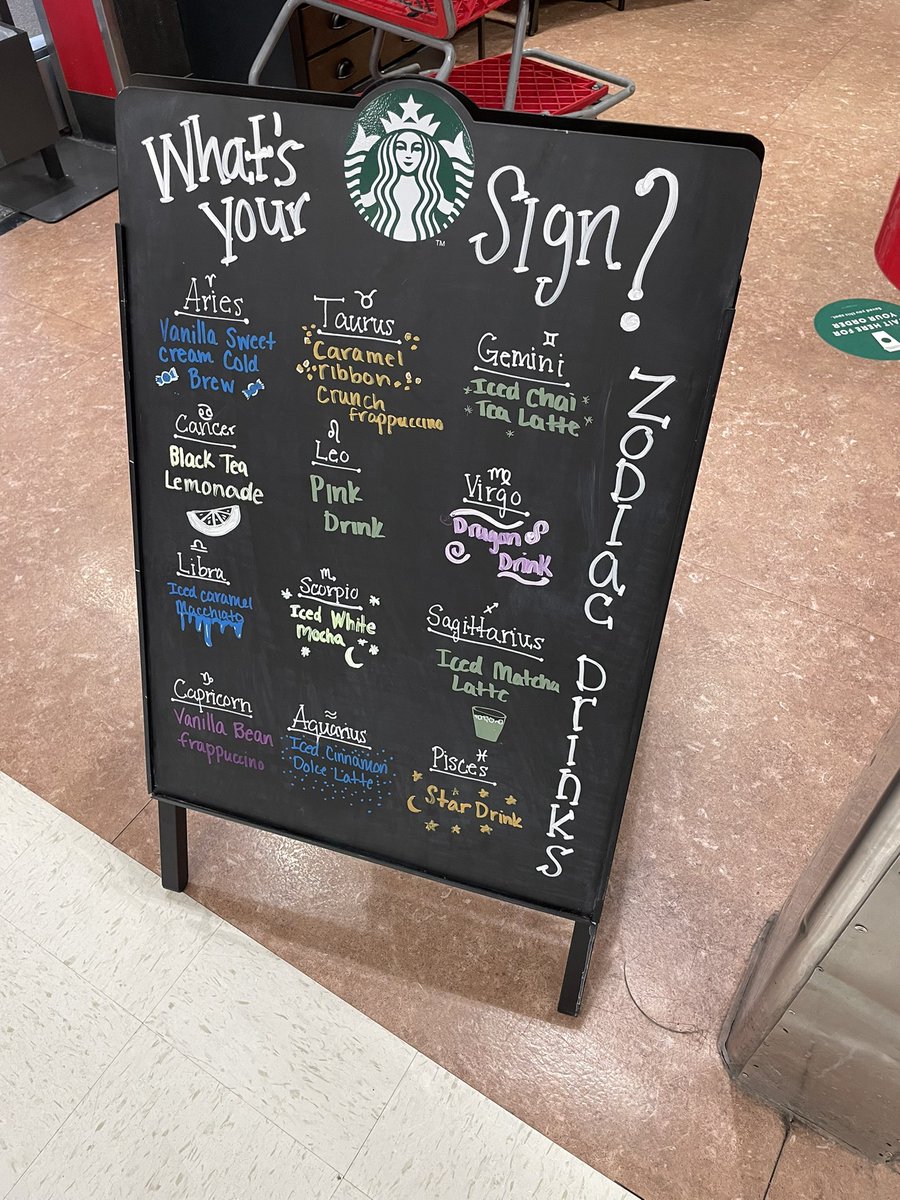 What's
your
Sign?
TM
Aries
Vanilla Sweet
cream Cold
Brew
Taurus
Caramel
ribbon
crunch
frappuccino
Gemini
Iced Chai
Tea Latte
Cancer
Black Tea
Lemonade
Leo
Pink
Drink
Virgo
Dragon
Drink
Libra
Iced caramel
Macchiato
Scorpio
Iced White
mocha
Sagittarius
Iced Matcha
Latte
Capricorn
Vanilla Bean
frappuccino
Aquarius
Iced Cinnamon
Dolce Latte
Pisces
Star Drink
Zodiac Drinks
WAIT HERE FOR
YOUR ORDER